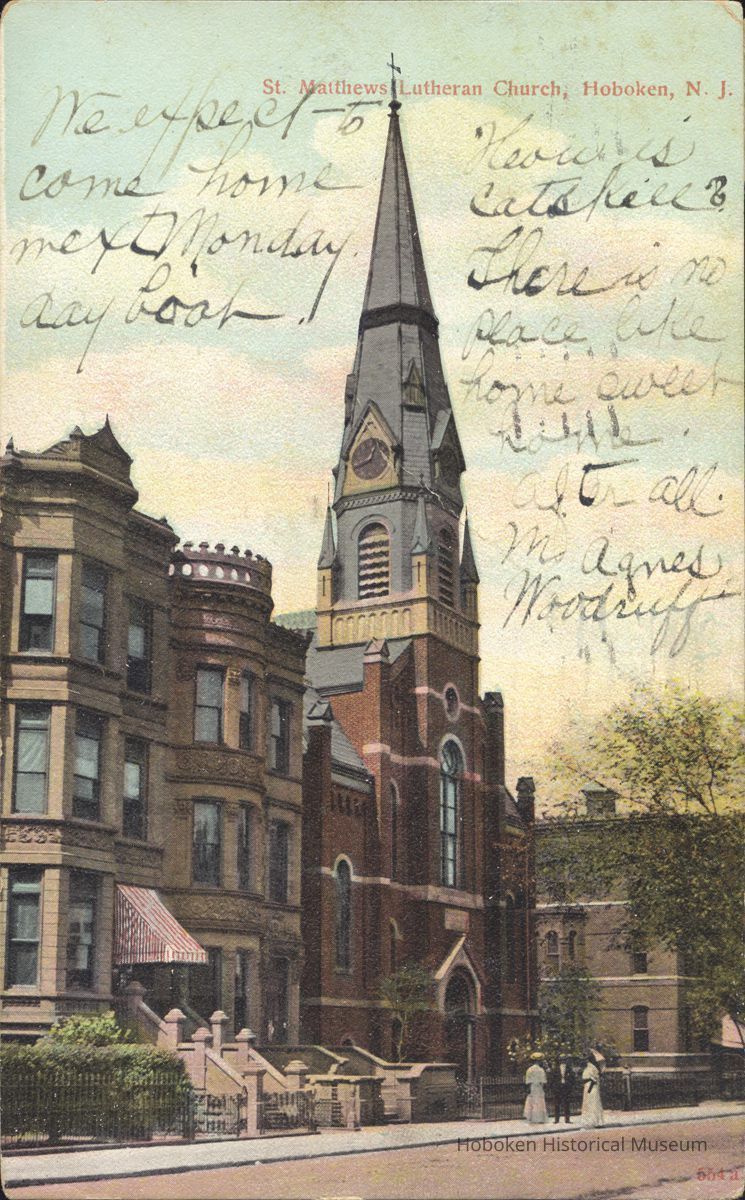 St. Matthews Lutheran Church, Hoboken, N. J.
We expect to
come home
next Monday.
day boat.
How is
catskill?
There is no
place like
home sweet
home.
after all.
M Agnes
Woodruff
Hoboken Historical Museum
554 a